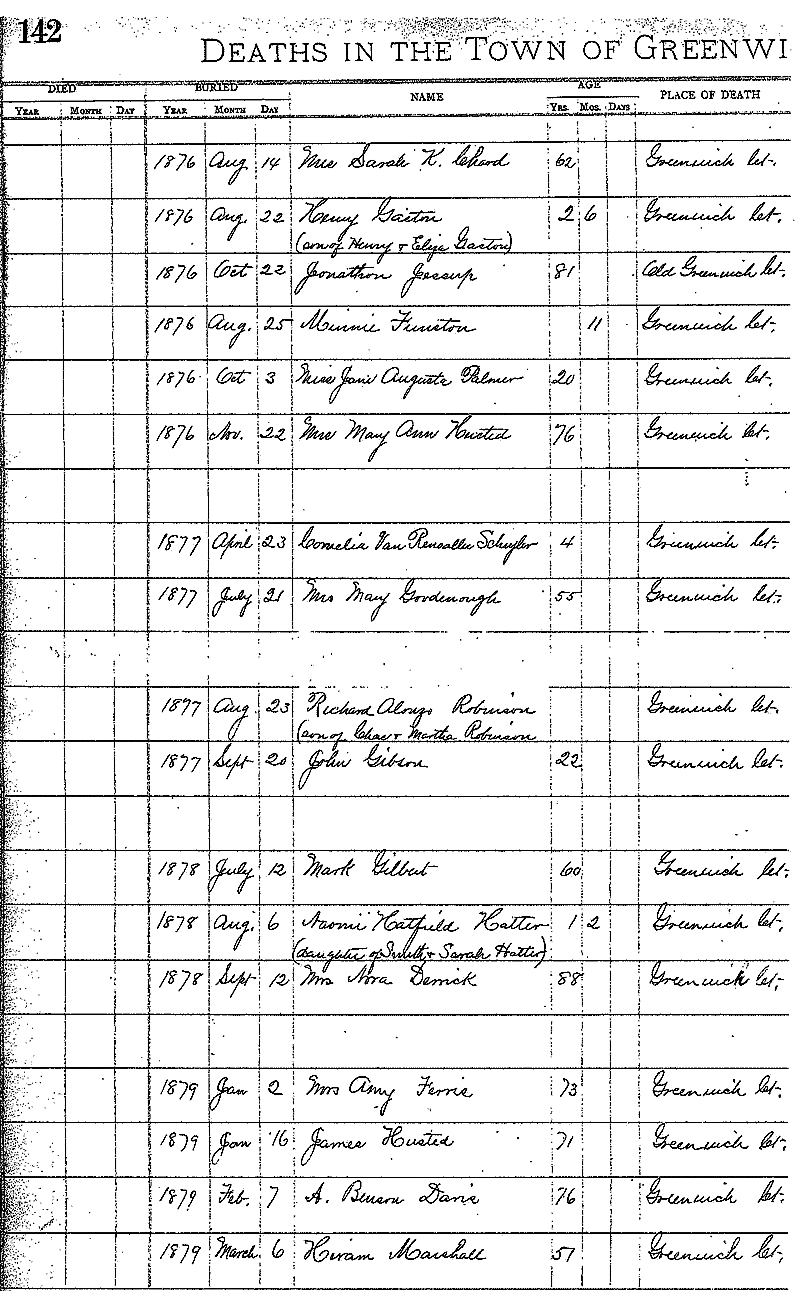 142
DEATHS IN THE TOWN OF GREENWI
DIED BURIED NAME AGE PLACE OF DEATH
YEAR MONTH DAY YEAR MONTH DAY YRS. MOS. DAYS
1876 Aug 14 Mrs Sarah K. Chard 62 Greenwich Ct.
1876 Aug. 22 Henry Gaston 2 6 Greenwich Ct.
(son of Henry & Eliza Gaston)
1876 Oct 22 Jonathon Jessup 81 Old Greenwich Ct.
1876 Aug. 25 Minnie Funston 11 Greenwich Ct.
1876 Oct 3 Miss Jane Augusta Palmer 20 Greenwich Ct.
1876 Nov. 22 Mrs Mary Ann Husted 76 Greenwich Ct.
1877 April 23 Cornelia Van Rensaller Schuyler 4 Greenwich Ct.
1877 July 21 Mrs Mary Goodenough 55 Greenwich Ct.
1877 Aug. 23 Richard Alonzo Robinson Greenwich Ct.
(son of Chas & Martha Robinson
1877 Sept 20 John Gibson 22 Greenwich Ct.
1878 July 12 Mark Gilbert 60 Greenwich Ct.
1878 Aug. 6 Naomi Hatfield Hatter 1 2 Greenwich Ct.
(daughter of Smith & Sarah Hatter)
1878 Sept 12 Mrs Nora Derrick 88 Greenwich Ct.
1879 Jan 2 Mrs Amy Ferris 73 Greenwich Ct.
1879 Jan 16 James Husted 71 Greenwich Ct.
1879 Feb. 7 A. Benson Davis 76 Greenwich Ct.
1879 March. 6 Hiram Marshall 57 Greenwich Ct.